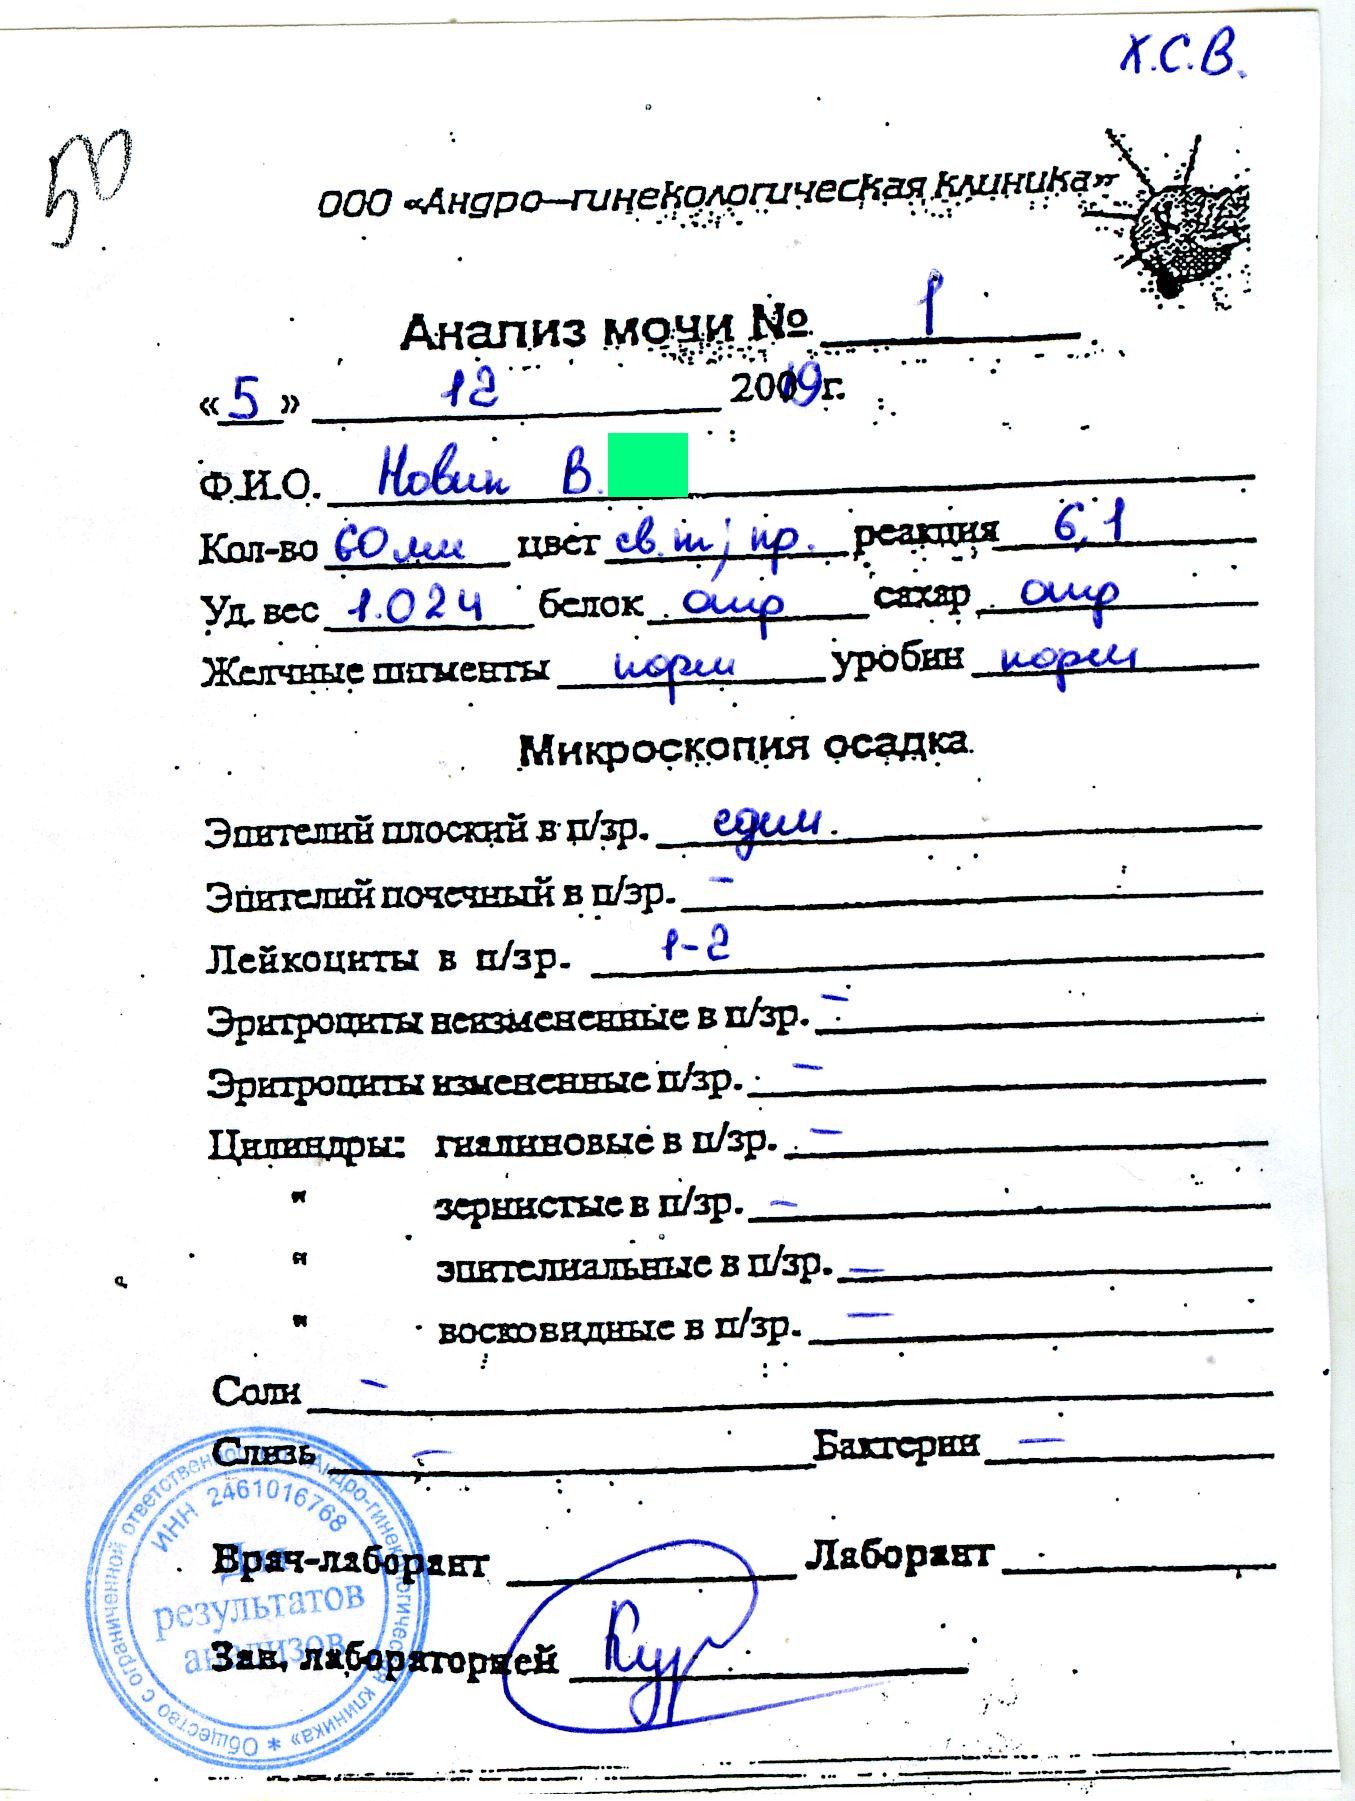 Х.С.В.
50
ООО «Андро-гинекологическая клиника»
Анализ мочи № 1
«5» 12 2009г.
Ф.И.О. Новик В.
Кол-во 60 мл цвет св. ж; пр. реакция 6,1
Уд. вес 1.024 белок отр сахар отр
Желчные пигменты норм уробин норм
Микроскопия осадка
Эпителий плоский в п/зр. един.
Эпителий почечный в п/зр. –
Лейкоциты в п/зр. 1-2
Эритроциты неизмененные в п/зр. –
Эритроциты измененные п/зр. –
Цилиндры: гиалиновые в п/зр. –
" зернистые в п/зр. –
" эпителиальные в п/зр. –
" восковидные в п/зр. –
Соли –
Слизь – Бактерии –
Врач-лаборант Лаборант
Зав. лабораторией Кур
Общество с ограниченной ответственностью «Андро-гинекологическая клиника» *
ИНН 2461016768
Для
результатов
анализов